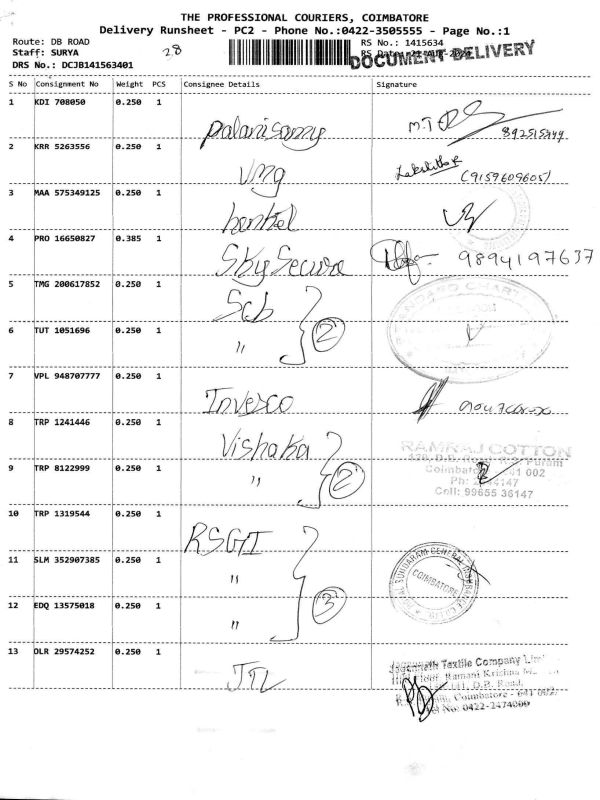 THE PROFESSIONAL COURIERS, COIMBATORE
Delivery Runsheet - PC2 - Phone No.:0422-3505555 - Page No.:1
Route: DB ROAD 28 RS No.: 1415634
Staff: SURYA
DRS No.: DCJB141563401 DOCUMENT DELIVERY
S No Consignment No Weight PCS Consignee Details Signature
1 KDI 708050 0.250 1 Palanisamy M.T
2 KRR 5263556 0.250 1 VMG (9159609605)
3 MAA 575349125 0.250 1 henkel
4 PRO 16650827 0.385 1 Sky Secure 9894197637
5 TMG 200617852 0.250 1 Scb
6 TUT 1051696 0.250 1 " 2
7 VPL 948707777 0.250 1 Invesco
8 TRP 1241446 0.250 1 Vishaka RAMRAJ COTTON
9 TRP 8122999 0.250 1 " 2 Coimbatore 641 002
Cell: 99655 36147
10 TRP 1319544 0.250 1 RSGI
11 SLM 352907385 0.250 1 " SUNDARAM GENERAL INSURANCE COIMBATORE
12 EDQ 13575018 0.250 1 " 3
13 DLR 29574252 0.250 1 JTL Jagannath Textile Company
Ramani Krishna
D.B. Road,
Coimbatore - 641 002.
No: 0422-2474000